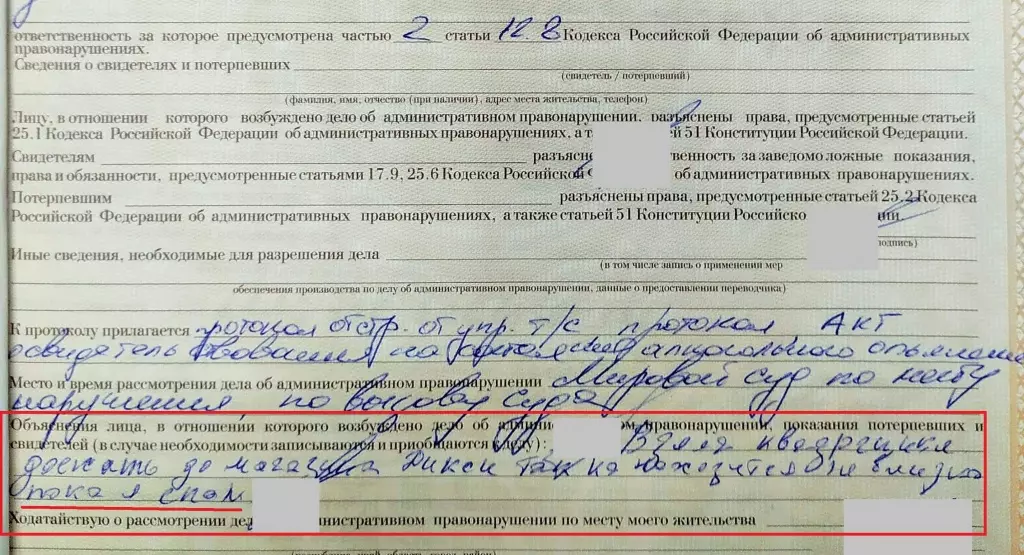 ответственность за которое предусмотрена частью 2 статьи 12.8 Кодекса Российской Федерации об административных
правонарушениях.
Сведения о свидетелях и потерпевших
(свидетель / потерпевший)
(фамилия, имя, отчество (при наличии), адрес места жительства, телефон)
Лицу, в отношении которого возбуждено дело об административном правонарушении, разъяснены права, предусмотренные статьей
25.1 Кодекса Российской Федерации об административных правонарушениях, а т й 51 Конституции Российской Федерации.
Свидетелям разъясне твенность за заведомо ложные показания,
права и обязанности, предусмотренные статьями 17.9, 25.6 Кодекса Российской об административных правонарушениях.
Потерпевшим разъяснены права, предусмотренные статьей 25.2 Кодекса
Российской Федерации об административных правонарушениях, а также статьей 51 Конституции Российско ции.
подпись)
Иные сведения, необходимые для разрешения дела
(в том числе запись о применении мер
обеспечения производства по делу об административном правонарушении, данные о предоставлении переводчика)
К протоколу прилагается протокол отстр. от упр. т/с протокол АКТ
освидетельствования на состояние алкогольного опьянения
Место и время рассмотрения дела об административном правонарушении Мировой суд по месту
нарушения, по вызову суда
Объяснения лица, в отношении которого возбуждено дело об админис ом правонарушении, показания потерпевших и
свидетелей (в случае необходимости записываются и приобщаются к делу): Взял квадрацикл
доехать до магазина Дикси так на находится не близко
пока я спал
Ходатайствую о рассмотрении дел министративном правонарушении по месту моего жительства